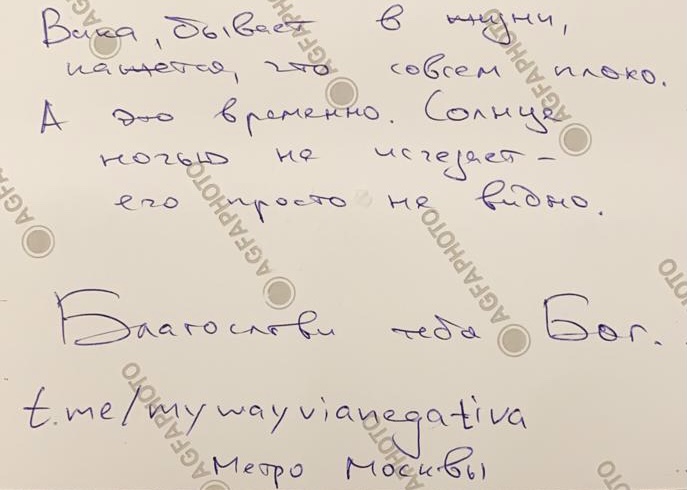 Вика, бывает в жизни,
кажется, что совсем плохо.
А это временно. Солнце
ночью не исчезает –
его просто не видно.
Благослови тебя Бог.
t.me/mywayvianegativa
Метро Москвы
AGFAPHOTO
AGFAPHOTO
AGFAPHOTO
AGFAPHOTO
AGFAPHOTO
AGFAPHOTO